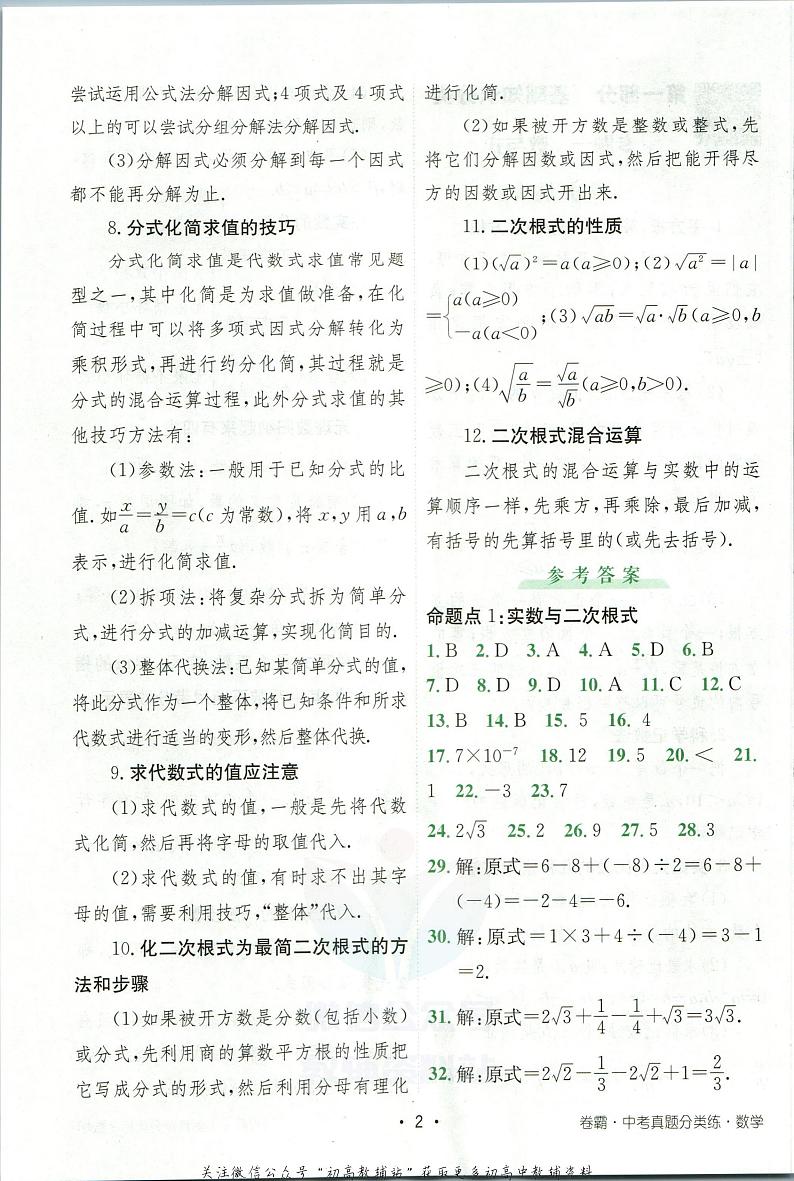 尝试运用公式法分解因式;4 项式及 4 项式
以上的可以尝试分组分解法分解因式.
(3)分解因式必须分解到每一个因式
都不能再分解为止.
8. 分式化简求值的技巧
分式化简求值是代数式求值常见题
型之一,其中化简是为求值做准备,在化
简过程中可以将多项式因式分解转化为
乘积形式,再进行约分化简,其过程就是
分式的混合运算过程,此外分式求值的其
他技巧方法有:
(1)参数法:一般用于已知分式的比
值. 如x/a=y/b=c(c 为常数),将 x,y 用 a,b
表示,进行化简求值.
(2)拆项法:将复杂分式拆为简单分
式,进行分式的加减运算,实现化简目的.
(3)整体代换法:已知某简单分式的值,
将此分式作为一个整体,将已知条件和所求
代数式进行适当的变形,然后整体代换.
9. 求代数式的值应注意
(1)求代数式的值,一般是先将代数
式化简,然后再将字母的取值代入.
(2)求代数式的值,有时求不出其字
母的值,需要利用技巧,“整体”代入.
10. 化二次根式为最简二次根式的方
法和步骤
(1)如果被开方数是分数(包括小数)
或分式,先利用商的算数平方根的性质把
它写成分式的形式,然后利用分母有理化
进行化简.
(2)如果被开方数是整数或整式,先
将它们分解因数或因式,然后把能开得尽
方的因数或因式开出来.
11. 二次根式的性质
(1)(√a)²=a(a≥0);(2)√a²=|a|
={a(a≥0) −a(a<0);(3)√ab=√a·√b(a≥0,b
≥0);(4)√(a/b)=√a/√b(a≥0,b>0).
12. 二次根式混合运算
二次根式的混合运算与实数中的运
算顺序一样,先乘方,再乘除,最后加减,
有括号的先算括号里的(或先去括号).
参考答案
命题点 1:实数与二次根式
1. B 2. D 3. A 4. A 5. D 6. B
7. D 8. D 9. D 10. A 11. C 12. C
13. B 14. B 15. 5 16. 4
17. 7×10⁻⁷ 18. 12 19. 5 20. < 21.
1 22. −3 23. 7
24. 2√3 25. 2 26. 9 27. 5 28. 3
29. 解:原式=6−8+(−8)÷2=6−8+
(−4)=−2−4=−6.
30. 解:原式=1×3+4÷(−4)=3−1
=2.
31. 解:原式=2√3+1/4−1/4+√3=3√3.
32. 解:原式=2√2−1/3−2√2=−1/3.
· 2 ·
卷霸·中考真题分类练·数学
关注微信公众号“初高教辅站”获取更多初高中教辅资料